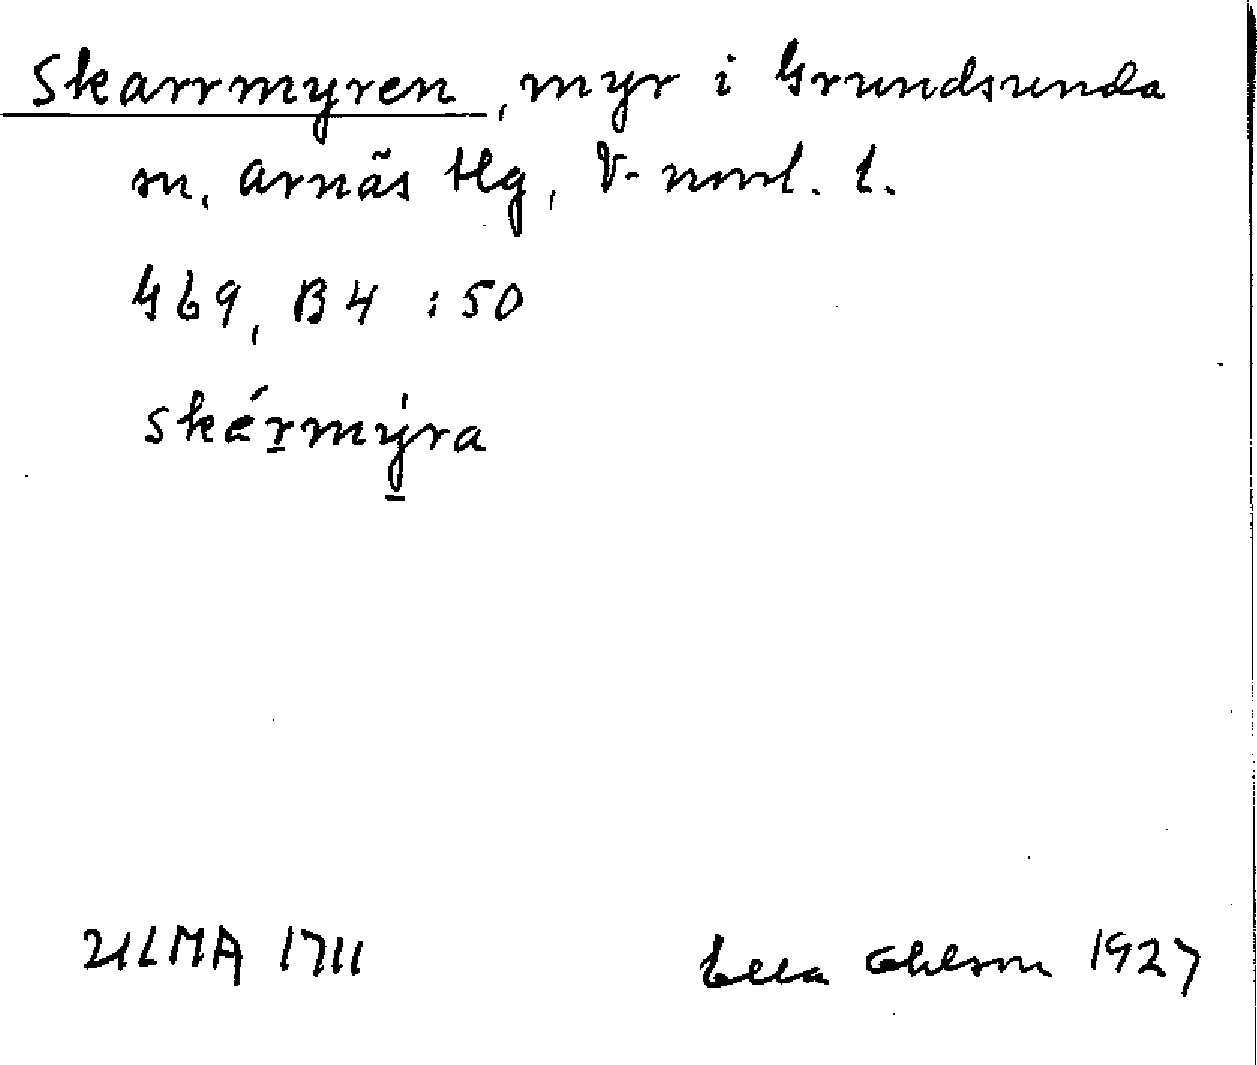 Skarrmyren, myr i Grundsunda
sn, Arnäs tlg, V-norrl. l.
G69, B4 : 50
skármýra
ULMA 1711
Ella Ohlson 1927